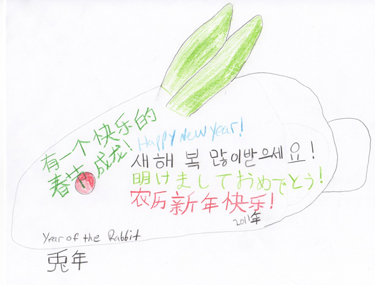 有一个快乐的
春节成龙！
Happy New Year!
새해 복 많이받으세요!
明けましておめでとう!
农历新年快乐!
2011年
Year of the Rabbit
兎年